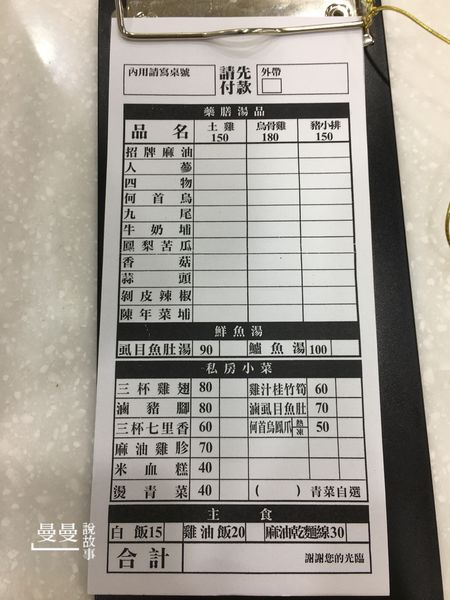 內用請寫桌號 請先付款 外帶
藥膳湯品
品名 土雞150 烏骨雞180 豬小排150
招牌麻油
人蔘
四物
何首烏
九尾
牛奶埔
鳳梨苦瓜
香菇
蒜頭
剝皮辣椒
陳年菜埔
鮮魚湯
虱目魚肚湯 90 鱸魚湯 100
私房小菜
三杯雞翅 80 雞汁桂竹筍 60
滷豬腳 80 滷虱目魚肚 70
三杯七里香 60 何首烏鳳爪 熱 凍 50
麻油雞胗 70
米血糕 40
燙青菜 40 ( ) 青菜自選
主食
白飯15 雞油飯20 麻油乾麵線30
合計 謝謝您的光臨
曼曼說故事